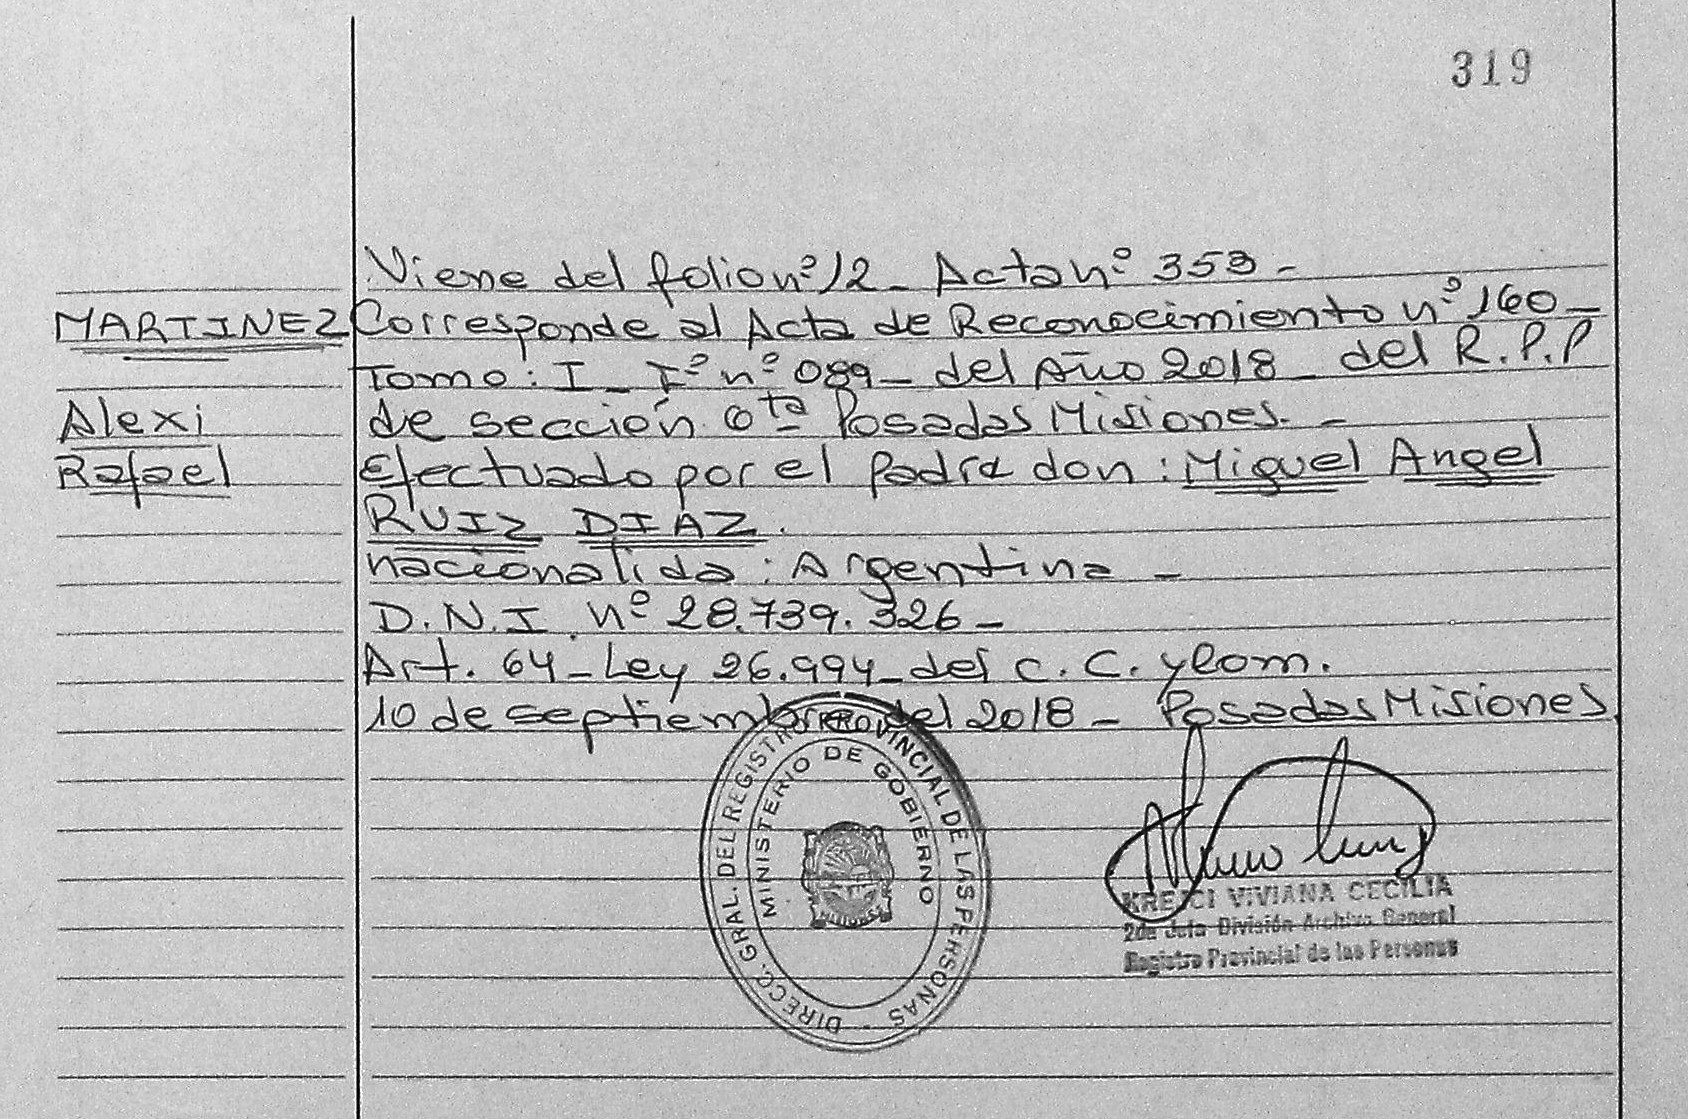 319
Viene del folio nº 12 - Acta nº 353 -
MARTINEZ
Corresponde al Acta de Reconocimiento nº 160 -
Tomo: I - Fº nº 089 - del Año 2018 - del R.P.P
Alexi
de sección 6ta Posadas Misiones. -
Rafael
Efectuado por el Padre don: Miguel Angel
RUIZ DIAZ.
nacionalida: Argentina -
D.N.I. nº 28.739.326 -
Art. 64 - Ley 26.994 - del C. C. y Com.
10 de septiembre del 2018 - Posadas Misiones
DIRECC. GRAL. DEL REGISTRO PROVINCIAL DE LAS PERSONAS -
MINISTERIO DE GOBIERNO
VIVIANA CECILIA
2da Jefa División Archivo General
Registro Provincial de las Personas